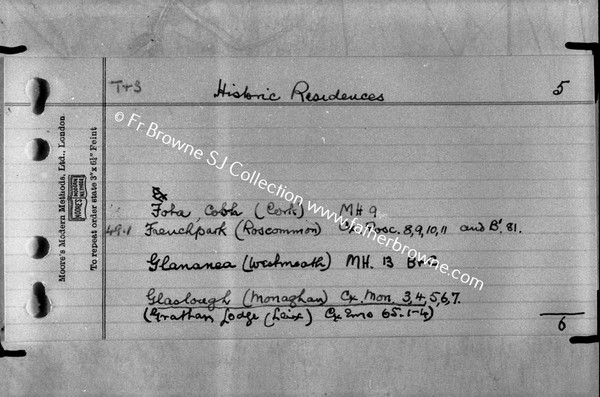 T+S Historic Residences 5
Ex
Fota, Cobh (Cork) MH 9
49.1 Frenchpark (Roscommon) Cx. Rosc. 8,9,10,11 and B', 81.
Glananea (Westmeath) MH. 13
Glaslough (Monaghan) Cx. Mon. 3,4,5,6,7.
(Grattan Lodge (Leix) Cx Emo 65.1-4)
6
Moore's Modern Methods, Ltd., London.
To repeat order state 3" x 6½" Feint
© Fr Browne SJ Collection www.fatherbrowne.com